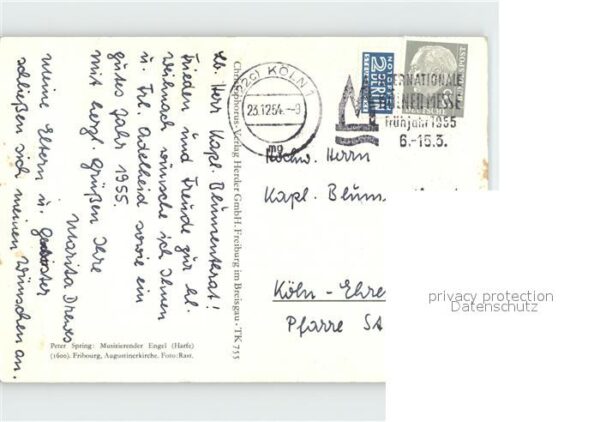 Lb. Herr Kapl. Blumenthrat!
Frieden und Freude zur hl.
Weihnacht wünsche ich Ihnen
u. Frl. Adelheid sowie ein
gutes Jahr 1955.
Mit herzl. Grüßen Ihre
Marita Drews
Meine Eltern u.
schließen sich meinen Wünschen an.
Peter Spring: Musizierender Engel (Harfe)
(1600). Fribourg, Augustinerkirche. Foto: Rast.
Christophorus-Verlag Herder GmbH. Freiburg im Breisgau · TK 755
(22c) KÖLN 1
23.12.54.-9
mg
NOTOPFER
2 BERLIN
STEUERMARKE
INTERNATIONALE
KÖLNER MESSE
Frühjahr 1955
6.-15.3.
Hochw. Herrn
Kapl. Blum
Köln-Ehre
Pfarre
privacy protection
Datenschutz